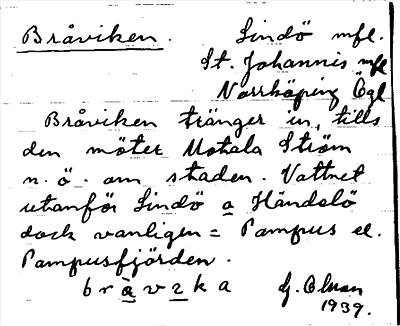 Bråviken. Lindö mfl.
St. Johannis mfl
Norrköping Ögl
Bråviken tränger in, tills
den möter Motala Ström
n. ö. om staden. Vattnet
utanför Lindö o Händelö
dock vanligen = Pampus el.
Pampusfjärden.
G.
1939.